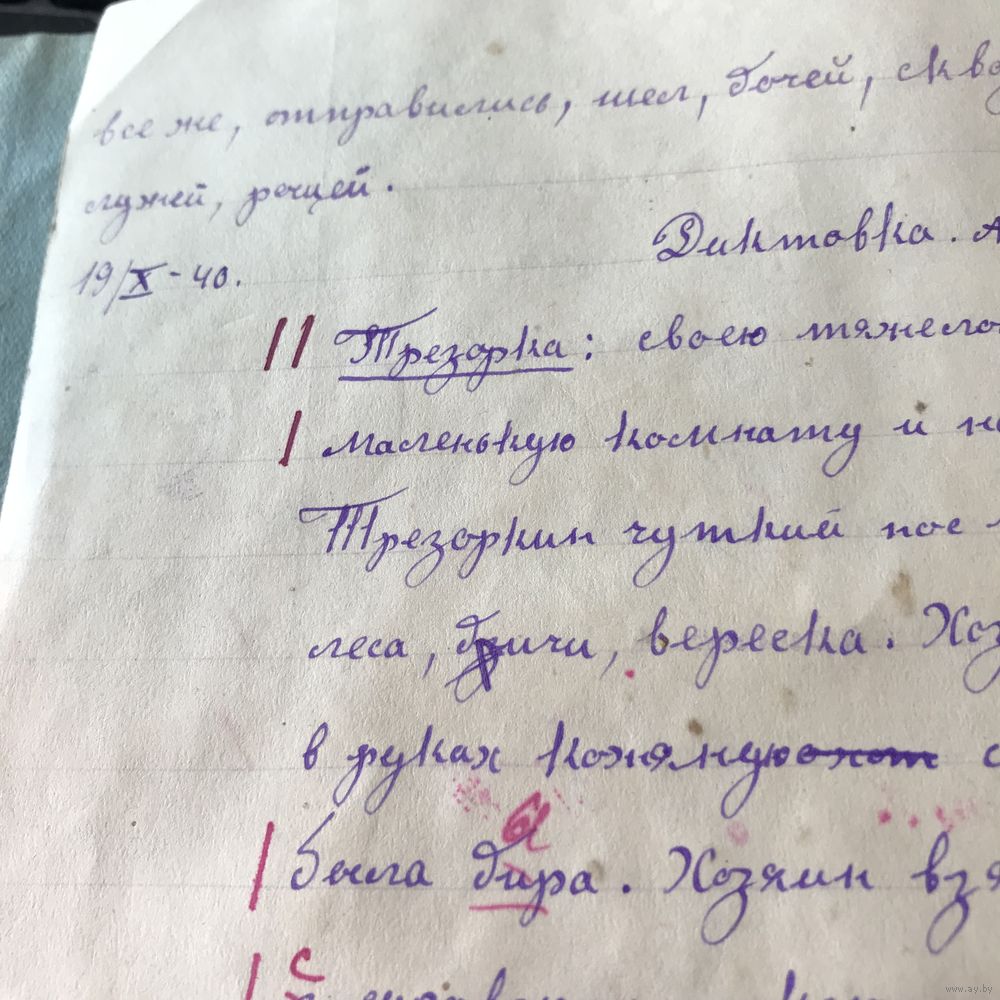 все же, отправились, шел, дочей, скво
лужей, рощей.
Диктовка. А
19/X - 40.
Трезорка: своею тяжело
маленькую комнату и на
Трезоркин чуткий
леса, дичи, вереска. Хоз
в руках кожяную
ы
была дира. Хозяин взя
с
www.ay.by